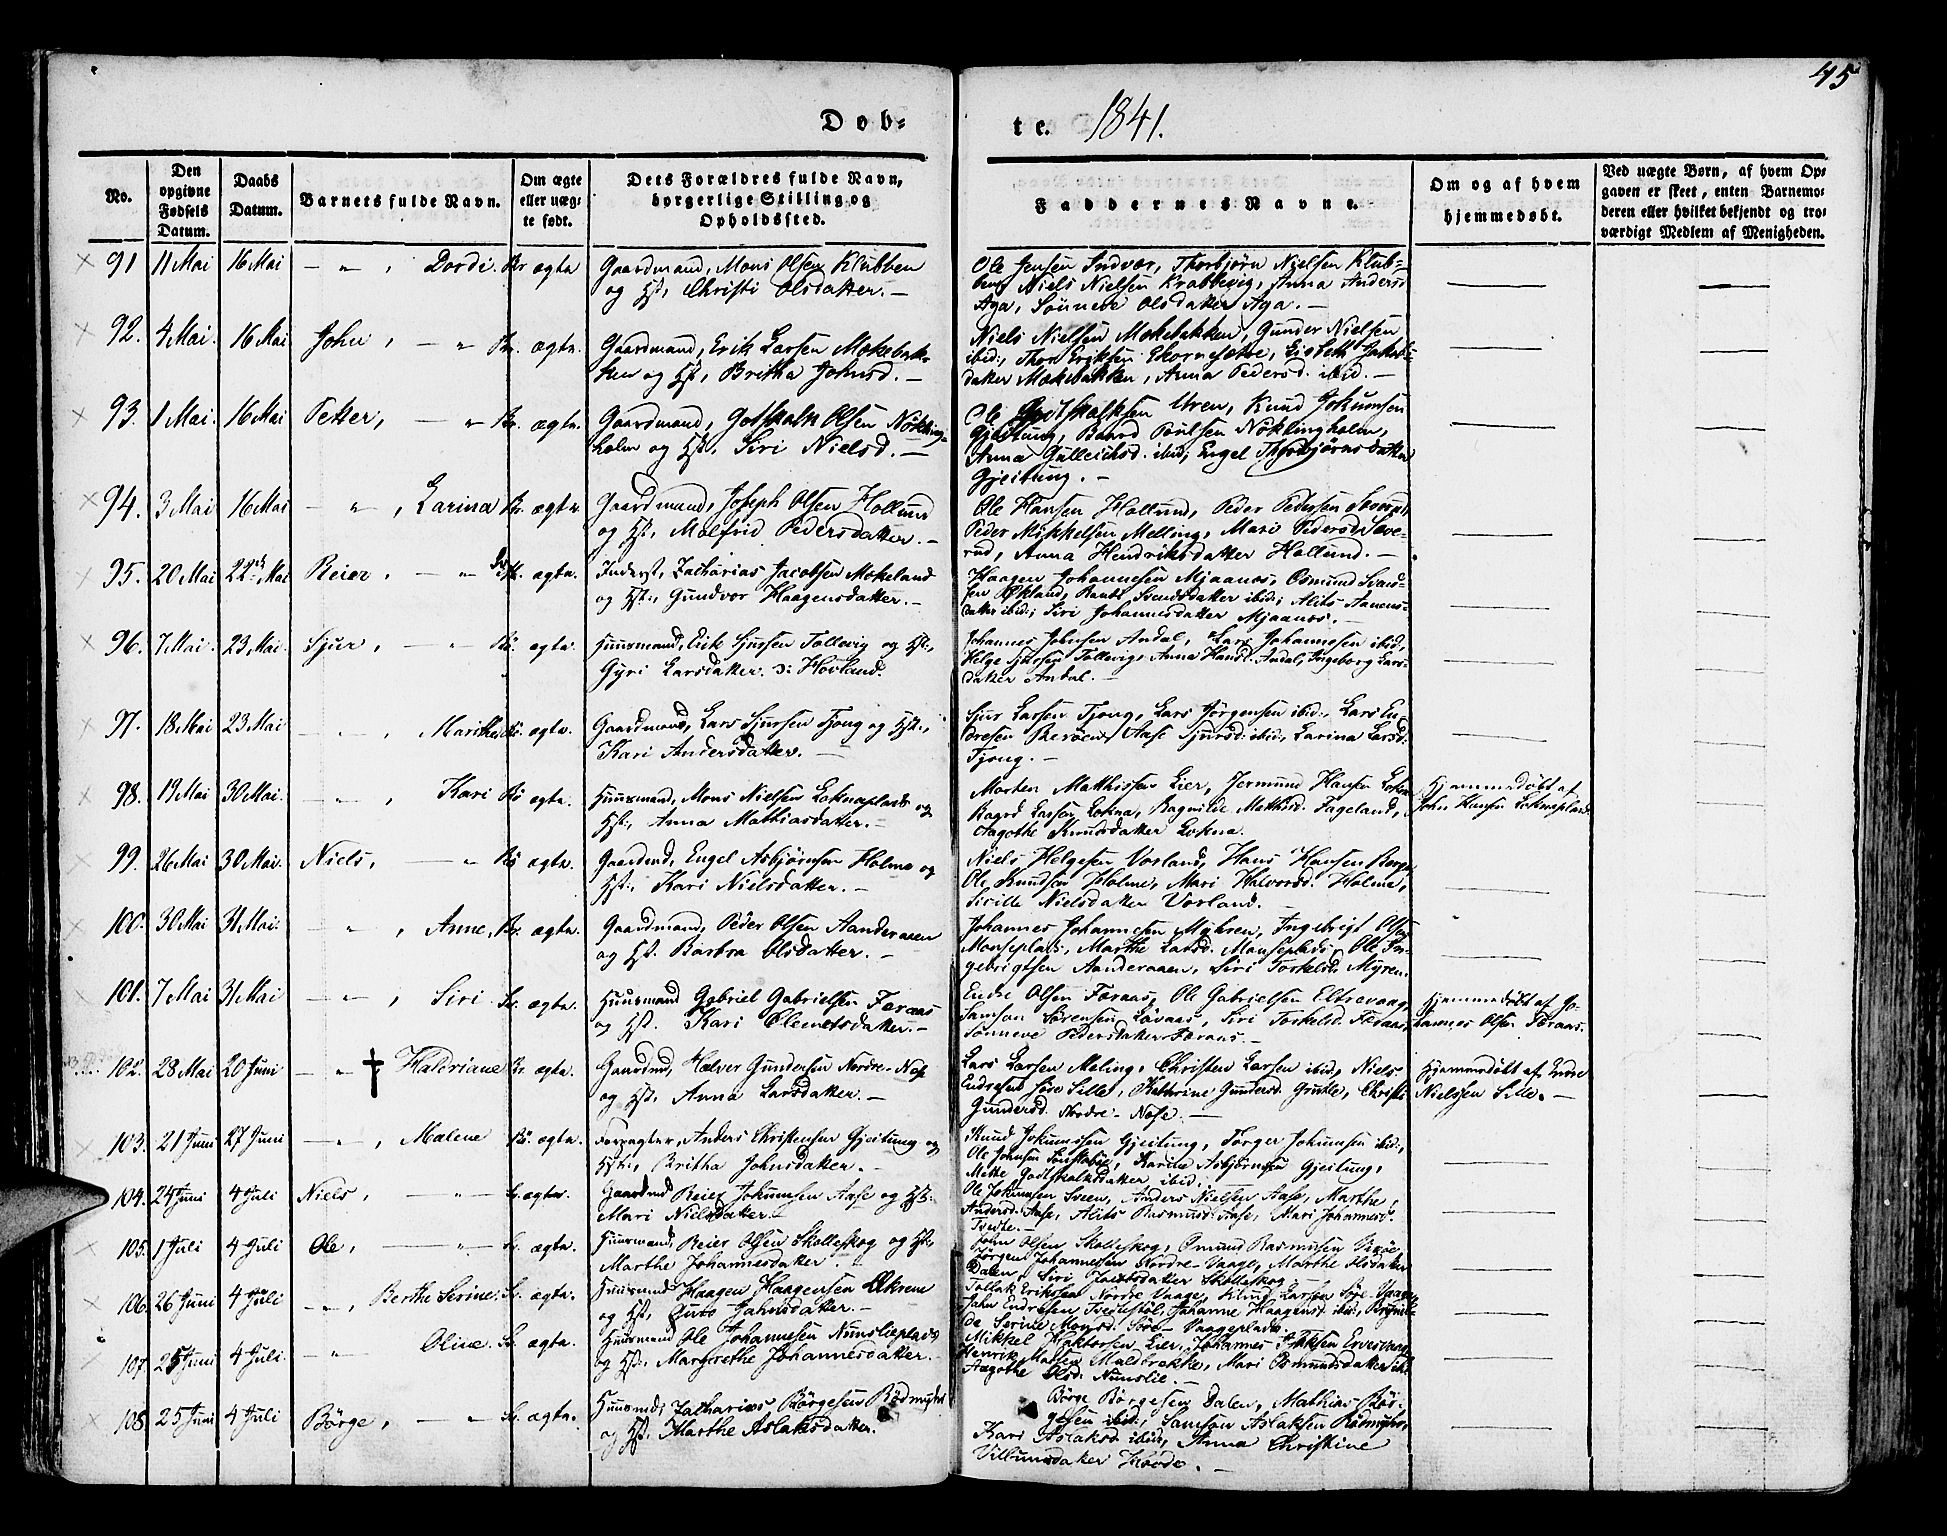 45
Døb-
te. 1841.
No.
Den opgivne Fødsels Datum.
Daabs Datum.
Barnets fulde Navn.
Om ægte eller uægte født.
Dets Forældres fulde Navn, borgerlige Stilling og Opholdssted.
Faddernes Navne.
Om og af hvem hjemmedøbt.
Ved uægte Børn, af hvem Opgaven er skeet, enten Barnemoderen eller hvilket bekjendt og troværdigt Medlem af Menigheden.
91 11 Mai 16 Mai — " , Dordi. Br ægte Gaardmand, Mons Olsen Klubben
og Hst, Christi Olsdatter. —
Ole Jensen Indvær, Thorbjørn Nielsen Klub-
ben, Niels Nielsen Krabbevig, Anna Andersd
Aga, Sønneve Olsdatter Aga. —
92. 4 Mai. 16 Mai John, — " Br. ægte. Gaardmand, Erik Larsen Møkebak-
ken og Hst, Britha Johnsd. —
Niels Nielsen Møkebakken, Gunder Nielsen
ibid:, Thor Eriksen Ekornesætre, Lisbeth Jakobs-
datter Møkebakken, Anna Pedersd. ibid. —
93. 1 Mai 16 Mai Petter, — " Br. ægte. Gaardmand, Gotskalk Olsen Nøkling-
holm og Hst, Siri Nielsd. —
Ole Gotskalksen Uren, Knud Jokumsen
Gjeitung, Baard Poulsen Nøklingholm,
Anna Gulleichsd. ibid, Engel Thorbjørnsdatter
Gjeitung. —
94. 3 Mai 16 Mai — " , Larina Br. ægte Gaardmand, Joseph Olsen Hollund
og Hst, Malfrid Pedersdatter. —
Ole Hansen Hollund, Peder Pedersen
Peder Mikkelsen Melling, Mari Pedersd
Anna Hendriksdatter Hollund. —
95. 20 Mai 22 Mai Reier, — " ægte. Inderst, Zacharias Jacobsen Møkeland
og Hst:, Gundvor Haagensdatter. —
Haagen Johannesen Mjaanæs, Osmund
Økland, Svendsdatter ibid; Alits
ibid; Siri Johannesdatter Mjaanæs. —
96. 7 Mai. 23 Mai. Sjur, — " Bö. ægte. Huusmand, Erik Sjursen Tollevig og Hst:,
Gyri Larsdatter. Hovland.
Johannes Johnsen Andal, Lars Johannesen ibid,
Helge Sjursen Tollevig, Anna Andal, Ingeborg Lars-
datter Andal. —
97. 18 Mai 23 Mai — " , Marithe Bö. ægte. Gaardmand, Lars Sjursen Fjong og Hst:,
Kari Andersdatter. —
Sjur Larsen Fjong, Lars Jørgensen ibid:, Lars En-
dresen Berøen, Aase Sjursd: ibid, Larina Larsd:
Fjong. —
98. 19 Mai 30 Mai. — " , Kari Bö ægte. Huusmand, Mons Nielsen Loknaplads og
Hst:, Anna Mathiasdatter. —
Morten Mathissen Eier, Jermund Hansen Lokna
Larsen Lokna, Ragnilde Mathisd. Fageland,
Aagothe Knudsdatter Lokna.
Hjemmedøbt af
John Hansen Loknaplads.
99. 26 Mai 30 Mai. Niels, — " Bö ægte. Gaardmd, Engel Asbjørnsen Holme og
Hst:, Kari Nielsdatter. —
Niels Helgesen Vorland, Hans Hansen Berge
Ole Knudsen Holme, Mari Halvorsd. Holme,
Sisille Nielsdatter Vorland. —
100. 30 Mai 31 Mai. — " , Anne, Br. ægte. Gaardmand, Peder Olsen Aanderaaen
og Hst. Barbra Olsdatter. —
Johannes Johannesen Myhren, Ingebrigt Olsen
Monseplads, Marthe Larsd. Monseplads, Ole In-
gebrigtsen Aanderaaen, Siri Torkelsd. Myren.
101. 7 Mai 31 Mai — " , Siri Sv. ægte. Huusmand Gabriel Gabrielsen Foraas
og Hst. Kari Clemetsdatter. —
Endre Olsen Foraas, Ole Gabrielsen Eltrevaag,
Samson Sørensen Løvaas, Siri Torkelsd. Foraas,
Sønneve Pedersdatter Foraas. —
Hjemmedøbt af Jo-
hannes Olsen Foraas.
102. 28 Mai 20 Juni — " † Haldoriane Br ægte. Gaardmd, Halvor Gundersen Nordre-Nøse
og Hst, Anna Larsdatter. —
Lars Larsen Meling, Christen Larsen ibid, Niels
Endresen Søre Sille, Kathrine Gundersd. Grutle, Christi
Gundersd. Nordre-Nøse. —
Hjemmedøbt af Endre
Nielsen Sille. —
103. 21 Juni 27 Juni — " , Malene Bö. ægte. Forpagter, Anders Christensen Gjeitung og
Hst:, Britha Johnsdatter. —
Knud Jokumssen Gjeitung, Tørger Jokumsen ibid:,
Ole Johnsen, Karine Asbjørnsen Gjeitung,
Mette Godtskalksdatter ibid:
104. 24 Juni 4 Juli Niels, — " Sv. ægte. Gaardmd Reier Jokumsen Aase og Hst:
Mari Nielsdatter. —
Ole Jokumsen Sveen, Anders Nielsen Aase, Marthe
Andersd. Aase, Alits Rasmusd. Aase, Mari Johannesd.
Tvedte. —
105. 1 Juli 4 Juli Ole, — " Sv. ægte. Huusmand, Reier Olsen Skolleskog og Hst,
Marthe Johannesdatter. —
John Olsen Skolleskog, Osmund Rasmusen
Jørgen Johannesen Nordre-Vaage, Marthe
Dalen, Siri Skolleskog
106. 26 Juni 4 Juli — " , Berthe Serine Sv. ægte. Huusmand Haagen Haagensen Økrene
og Hst, Guro Jahnsdatter. —
Tollak Eriksen Nordre Vaage, Knud Larsen Søre Vaage,
John Endresen, Johanne Haagensd. ibid,
Serine Monsd. Søre-Vaageplads.
107. 25 Juni 4 Juli. — " Oline Sv. ægte. Huusmand Ole Johannesen Nunslieplads
og Hst, Margrethe Johannesdatter. —
Mikkel Eier, Johannes Ervesvaag,
Henrik Matsen, Mari Osmundsdatter ibid
Aagothe Olsd. Nunslie. —
108 25 Juni 4 Juli Børge, — " Sv. ægte. Huusmd: Zacharias Børgesen Rødmyhr
og Hst. Marthe Aslaksdatter.
Børge Børgesen Dalen, Mathias Bør-
gesen ibid:, Samson Aslaksen Rødmyhr,
Kari Aslaksd ibid, Anna Christine
Villumsdatter Hovde. —